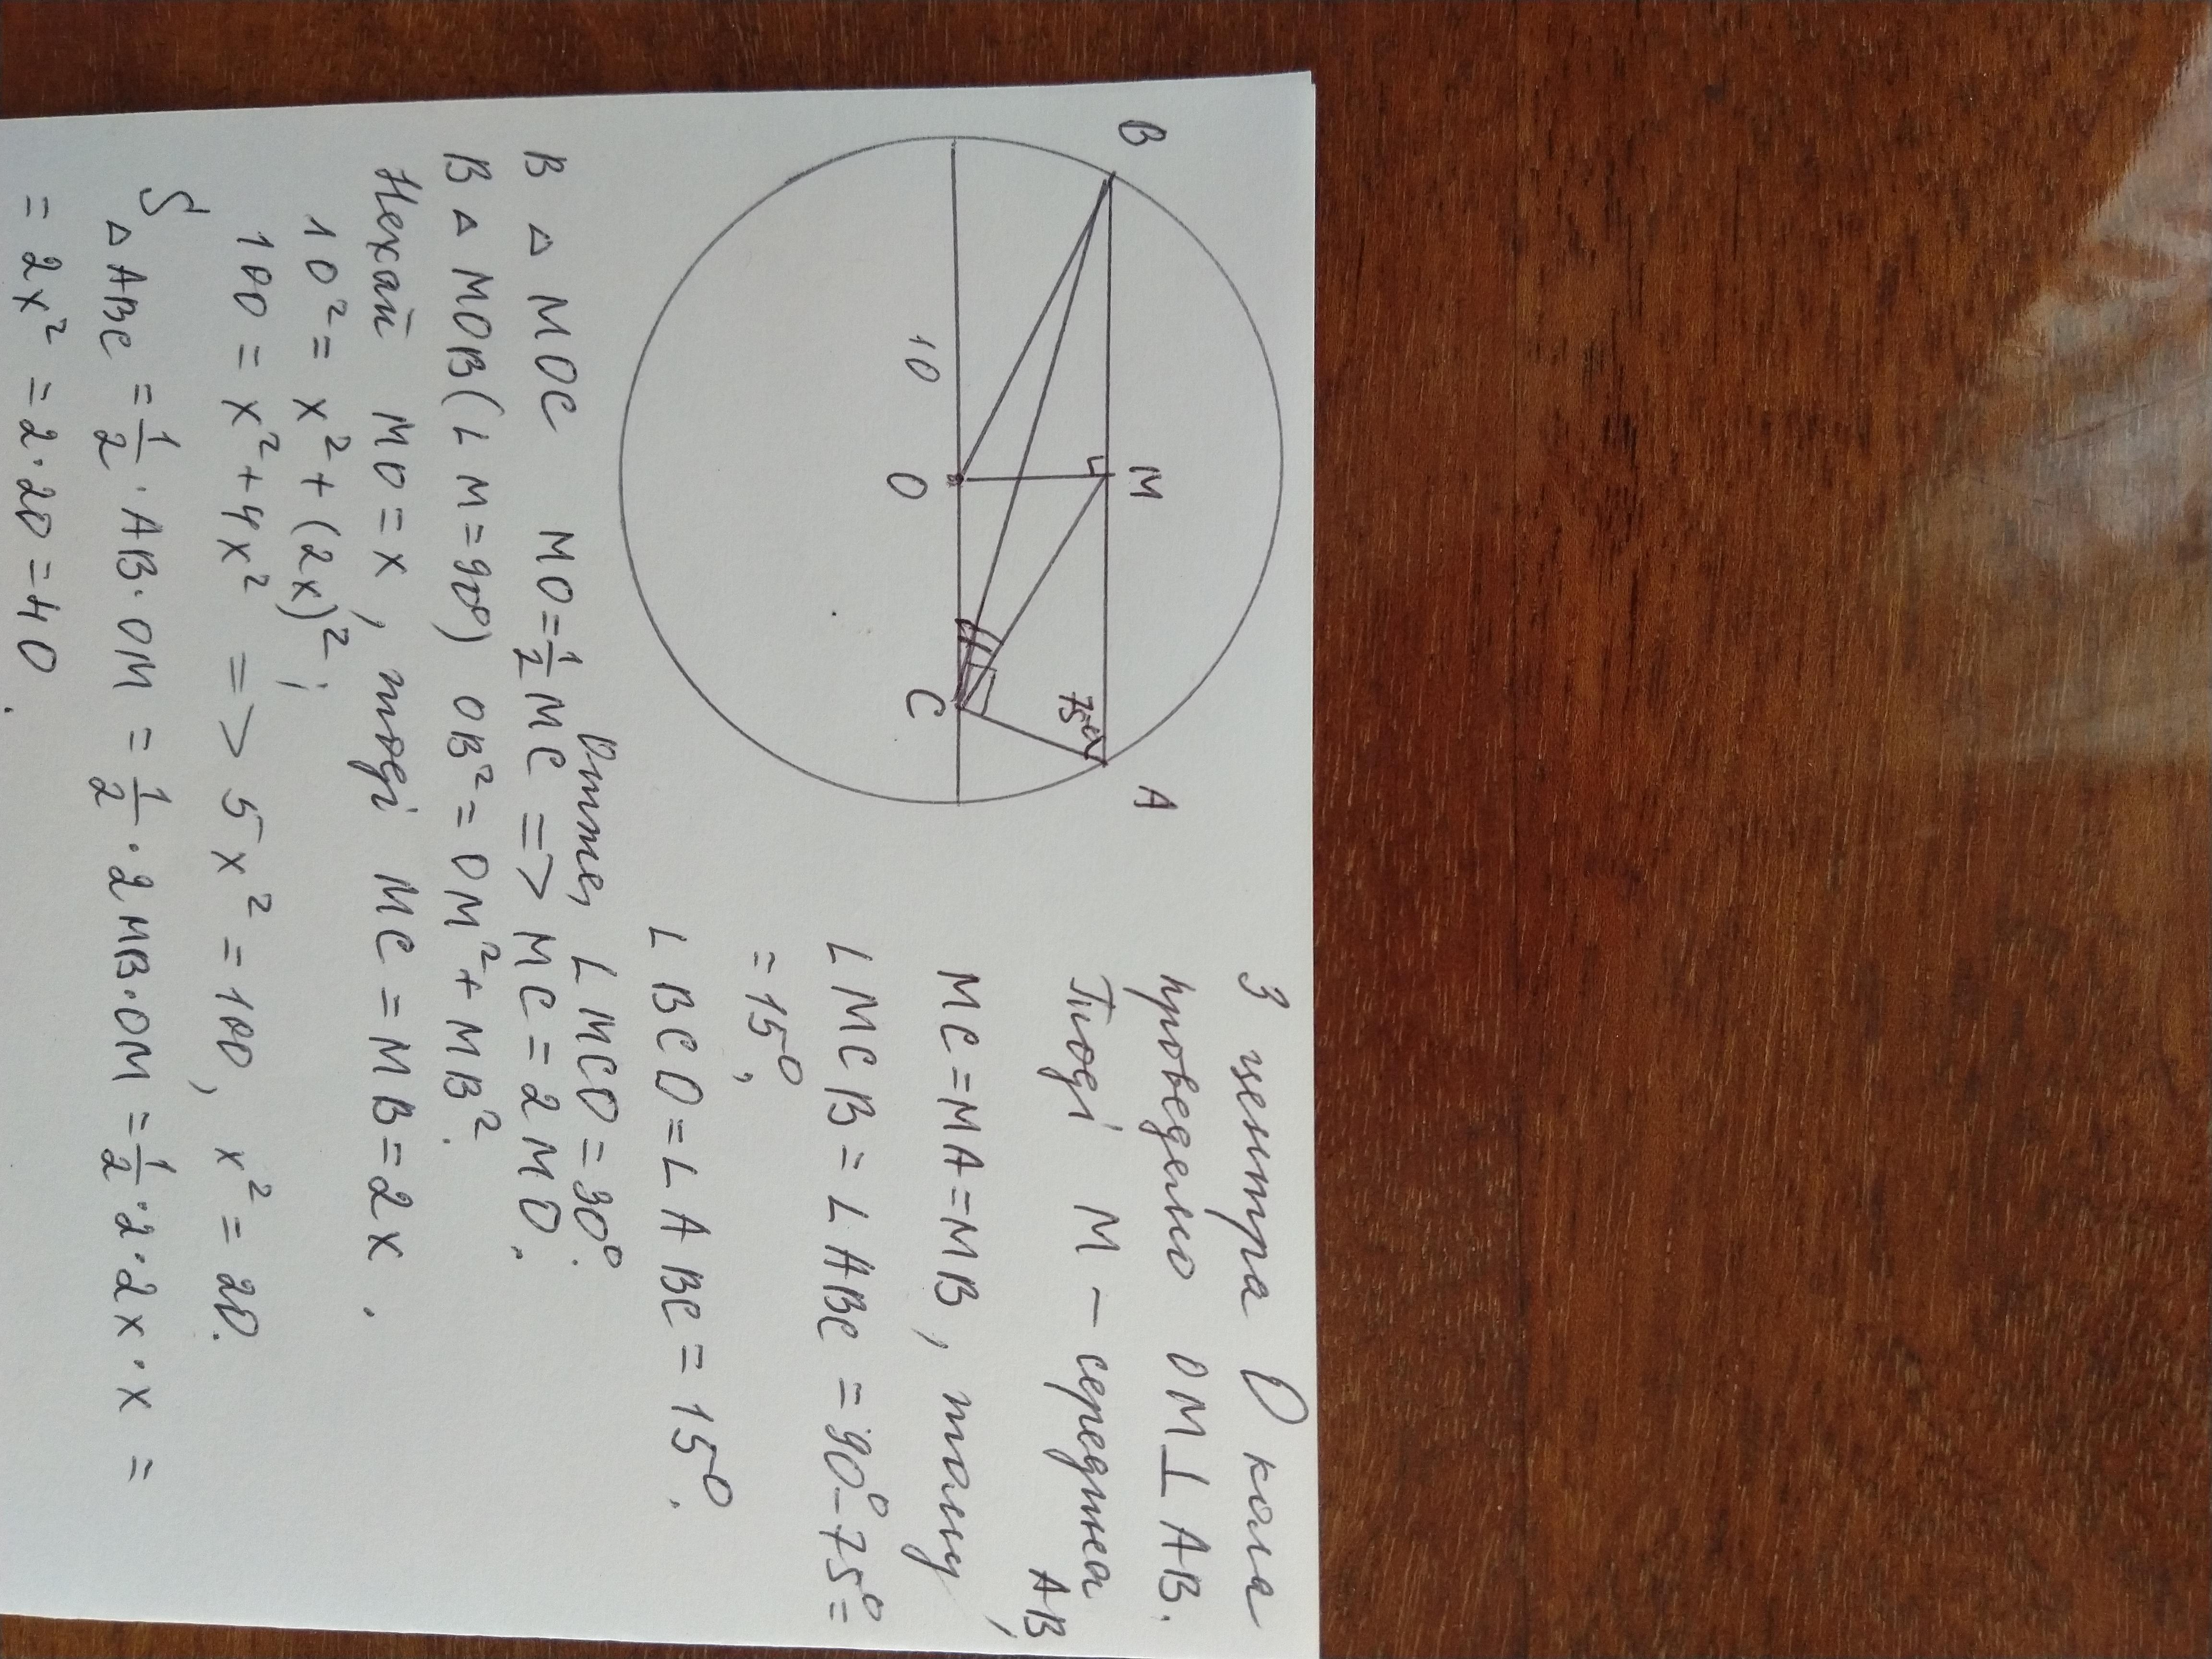 B
M
A
75°
10
O
C
З центра О кола
проведено OM⊥AB.
Тоді M – середина
AB,
MC=MA=MB, тому
∟MCB=∟ABC=90°-75°=
=15°,
∟BCO=∟ABC=15°.
Отже, ∟MCO=30°.
В △ MOC MO=1/2MC => MC=2MO.
В △ MOB(∟M=90°) OB²=OM²+MB².
Нехай MO=x, тоді MC=MB=2x.
10²=x²+(2x)²;
100=x²+4x² => 5x²=100, x²=20.
S△ABC=1/2·AB·OM=1/2·2MB·OM=1/2·2·2x·x=
=2x²=2·20=40.